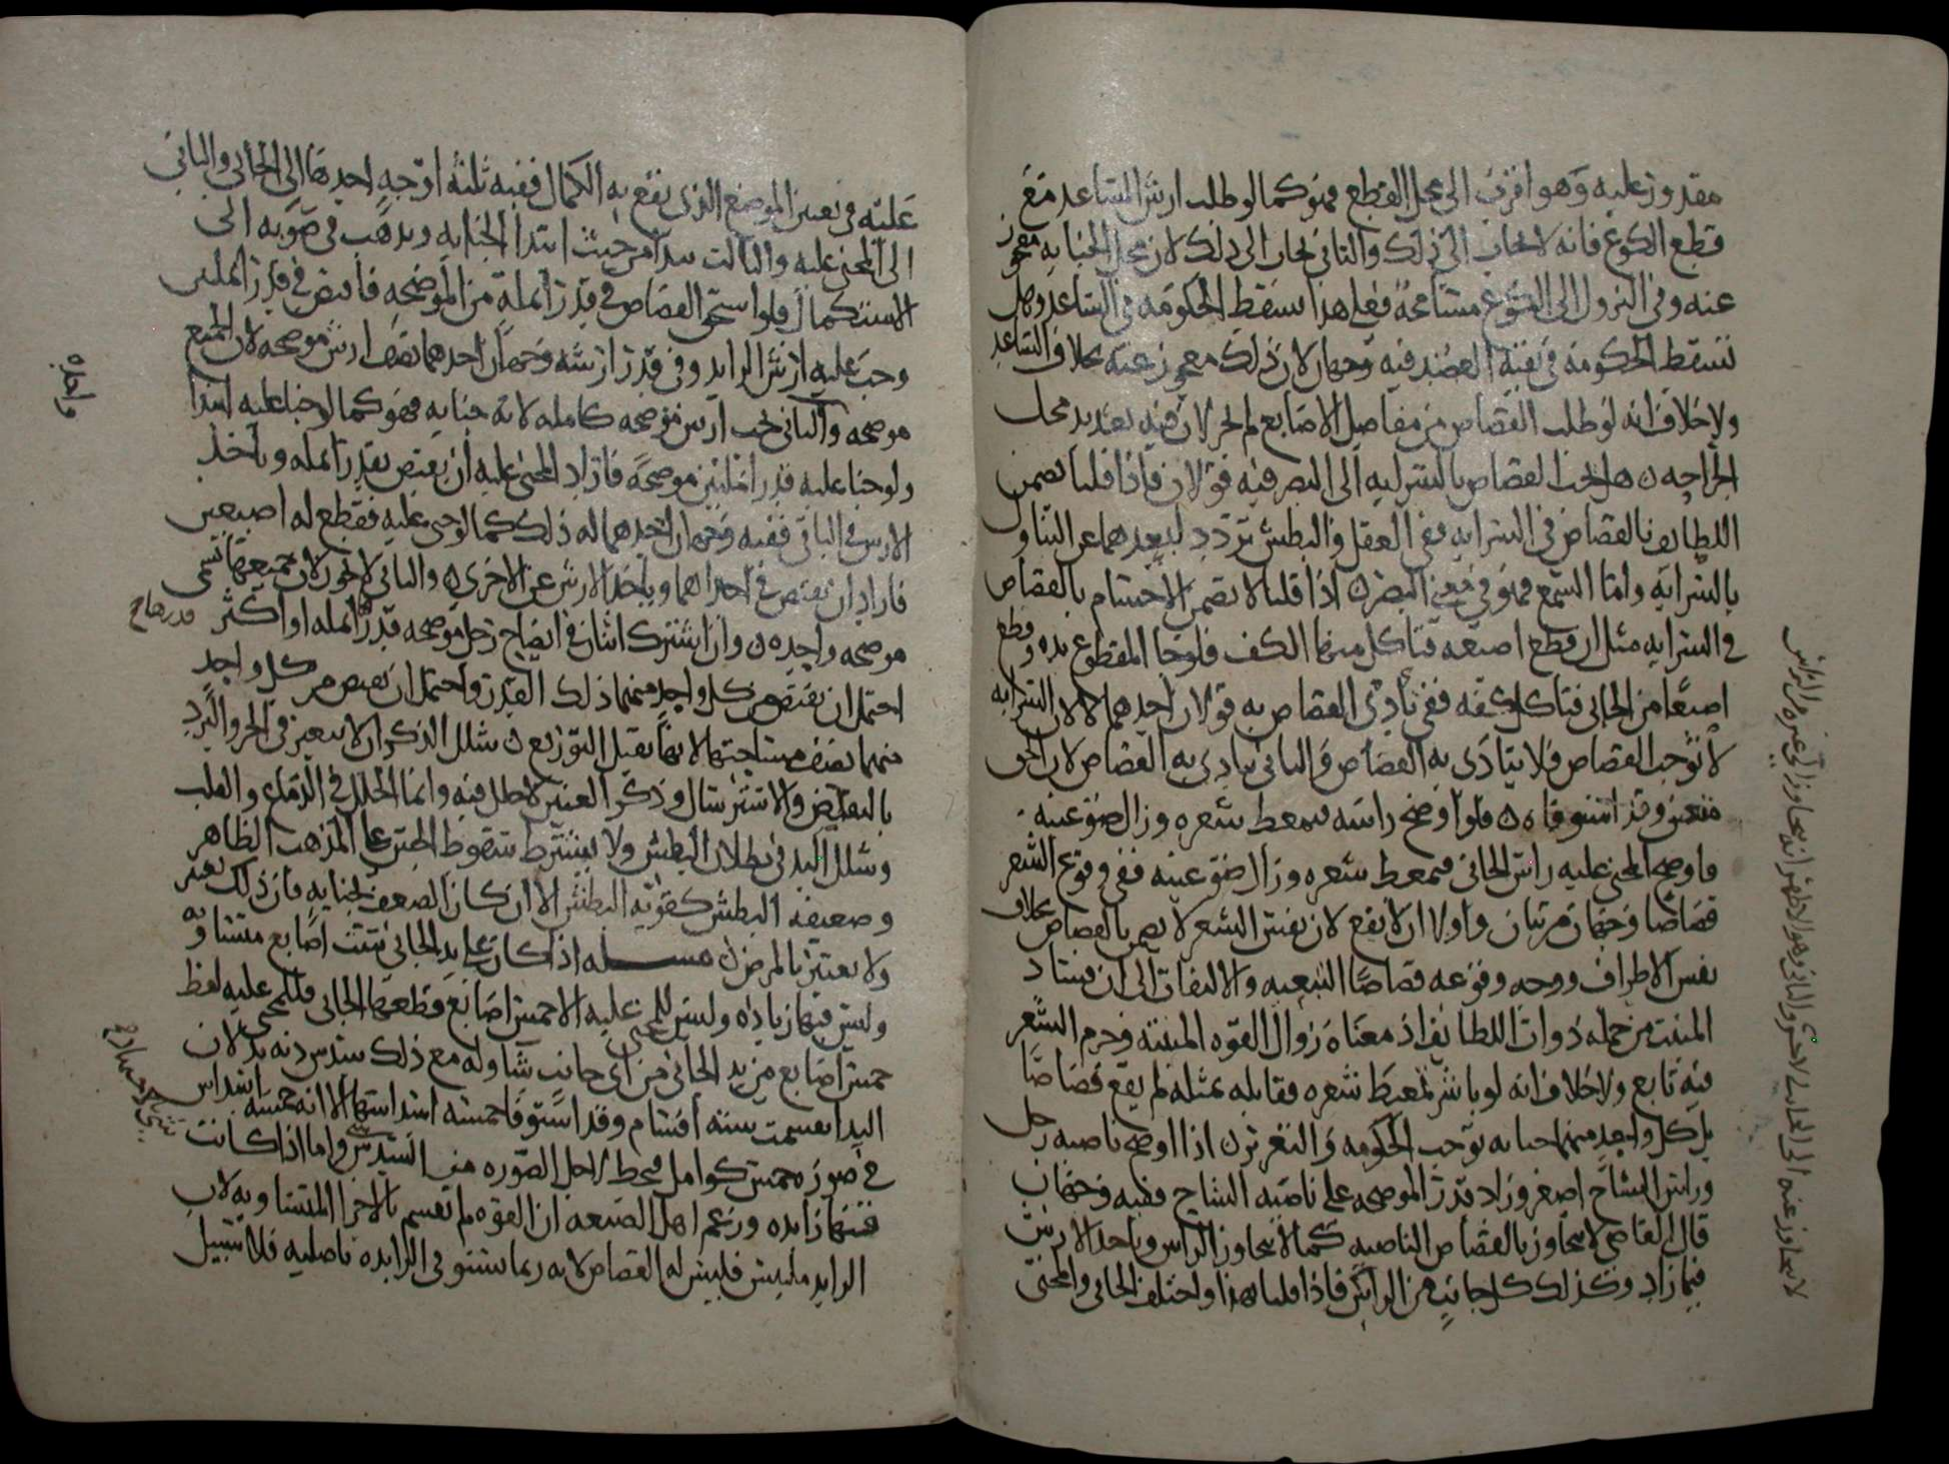 مقدور عليه وهو اقرب الى محل القطع فهو كما لو طلب ارش الساعد مع
قطع الكوع فانه لا يجاب الى ذلك والثاني يجاب الى ذلك لان محل الجناية معجوز
عنه وفي النزول الى الكوع مسامحة فعلى هذا سقط الحكومة في الساعد وهل
تسقط الحكومة في بقية العضد فيه وجهان لان ذلك معجوز عنه بخلاف الساعد
ولا خلاف انه لو طلب القصاص من مفاصل الاصابع لم يجز لان فيه تعديد محل
الجراحة ن هل يجب القصاص بالسراية الى البصر فيه قولان فاذا قلنا تضمن
اللطائف بالقصاص في السراية ففي العقل والبطش تردد لبعدهما عن التناول
بالسراية واما السمع فهو في معنى البصر ن اذا قلنا لا تضمن الاجسام بالقصاص
في السراية مثل ان قطع اصبعه فتأكل منها الكف فلو جا المقطوع يده وقطع
اصبعا من الجاني فتأكل كفه ففي تأدي القصاص به قولان احدهما لا لان السراية
لا توجب القصاص فلا يتادى به القصاص والثاني يتادى به القصاص لان الحق
متعين وقد استوفاه ن فلو اوضح راسه فتمعط شعره وزال ضو عينه
فاوضح المجني عليه راس الجاني فتمعط شعره وزال ضو عينه ففي وقوع الشعر
قصاصا وجهان مرتبان واولى ان لا يقع لان نفس الشعر لا يضمن بالقصاص بخلاف
نفس الاطراف ووجه وقوعه قصاصا التبعية والالتفات الى ان فساد
المنبت من جملة ذوات اللطائف اذ معناه زوال القوة المنبتة وجرم الشعر
فيه تابع ولا خلاف انه لو باشر تمعيط شعره فقابله بمثله لم يقع قصاصا
بل كل واحد منهما جناية توجب الحكومة والتعزير ن اذا اوضح ناصية رجل
وراس الشاج اصغر وزاد قدر الموضحة على ناصية الشاج ففيه وجهان
قال القاضي لا يجاوز بالقصاص الناصية كما لا يجاوز الراس وياخذ الارش
فيما زاد وكذلك كل جانب من الراس فاذا قلنا هذا واختلف الجاني والمجني
عليه في تعيين الموضع الذي يقع به الكمال ففيه ثلثة اوجه احدها الى الجاني والثاني
الى المجني عليه والثالث يبدأ من حيث ابتدا الجناية ويذهب في صوبه الى
الاستكمال فلو استحق القصاص في قدر انملة من الموضحة فاقتص في قدر انملتين
وجب عليه ارش الزايد وفي قدر ارشه وجهان احدهما نصف ارش موضحة لان الجميع
موضحة والثاني يجب ارش موضحة كاملة لانه جناية فهو كما لو جنا عليه ابتدا
ولو جنا عليه قدر انملتين موضحة فاراد المجني عليه ان يقتص بقدر انملة وياخذ
الارش في الباقي ففيه وجهان احدهما له ذلك كما لو جنى عليه فقطع له اصبعين
فاراد ان يقتص في احداهما وياخذ الارش عن الاخرى ن والثاني لا يجوز لان جميعها تسمى
موضحة واحدة ن وان اشترك اثنان في ايضاح رجل موضحة قدر انملة او اكثر
احتمل ان يقتص من كل واحد منهما ذلك القدر واحتمل ان يقتص من كل واحد
منهما نصف مساحتها لانها يقبل التوزيع ن شلل الذكر ان لا يتغير في الحر والبرد
بالتقليص والاسترسال وذكر العنين لا خلل فيه وانما الخلل في الدماغ والقلب
وشلل اليد في بطلان البطش ولا يشترط سقوط الحس على المذهب الظاهر
وضعيف البطش كقوية البطش الا ان كان الضعف لجناية فان ذلك يعتبر
ولا يعتبر بالمرض ن مسئلة اذا كان على يد الجاني ست اصابع متساوية
وليس فيها زيادة وليس للمجني عليه الا خمس اصابع وقطعها الجاني فللمجني عليه لقط
خمس اصابع من يد الجاني من اي جانب شا وله مع ذلك سدس دية يد لان
اليد انقسمت ستة اقسام وقد استوفا خمسة اسداسها الا انه خمسة اسداس
في صورة خمس كوامل فيحط لاجل الصورة من السدس شي واما اذا كانت
فيها زايدة وزعم اهل الصنعة ان القوة لم تقسم بالاجزا المتساوية لان
الزايد ملتبس فليس له القصاص لانه ربما يستوفي الزايدة باصلية فلا سبيل